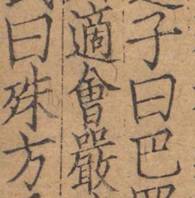 子曰巴
適會嚴
曰殊方